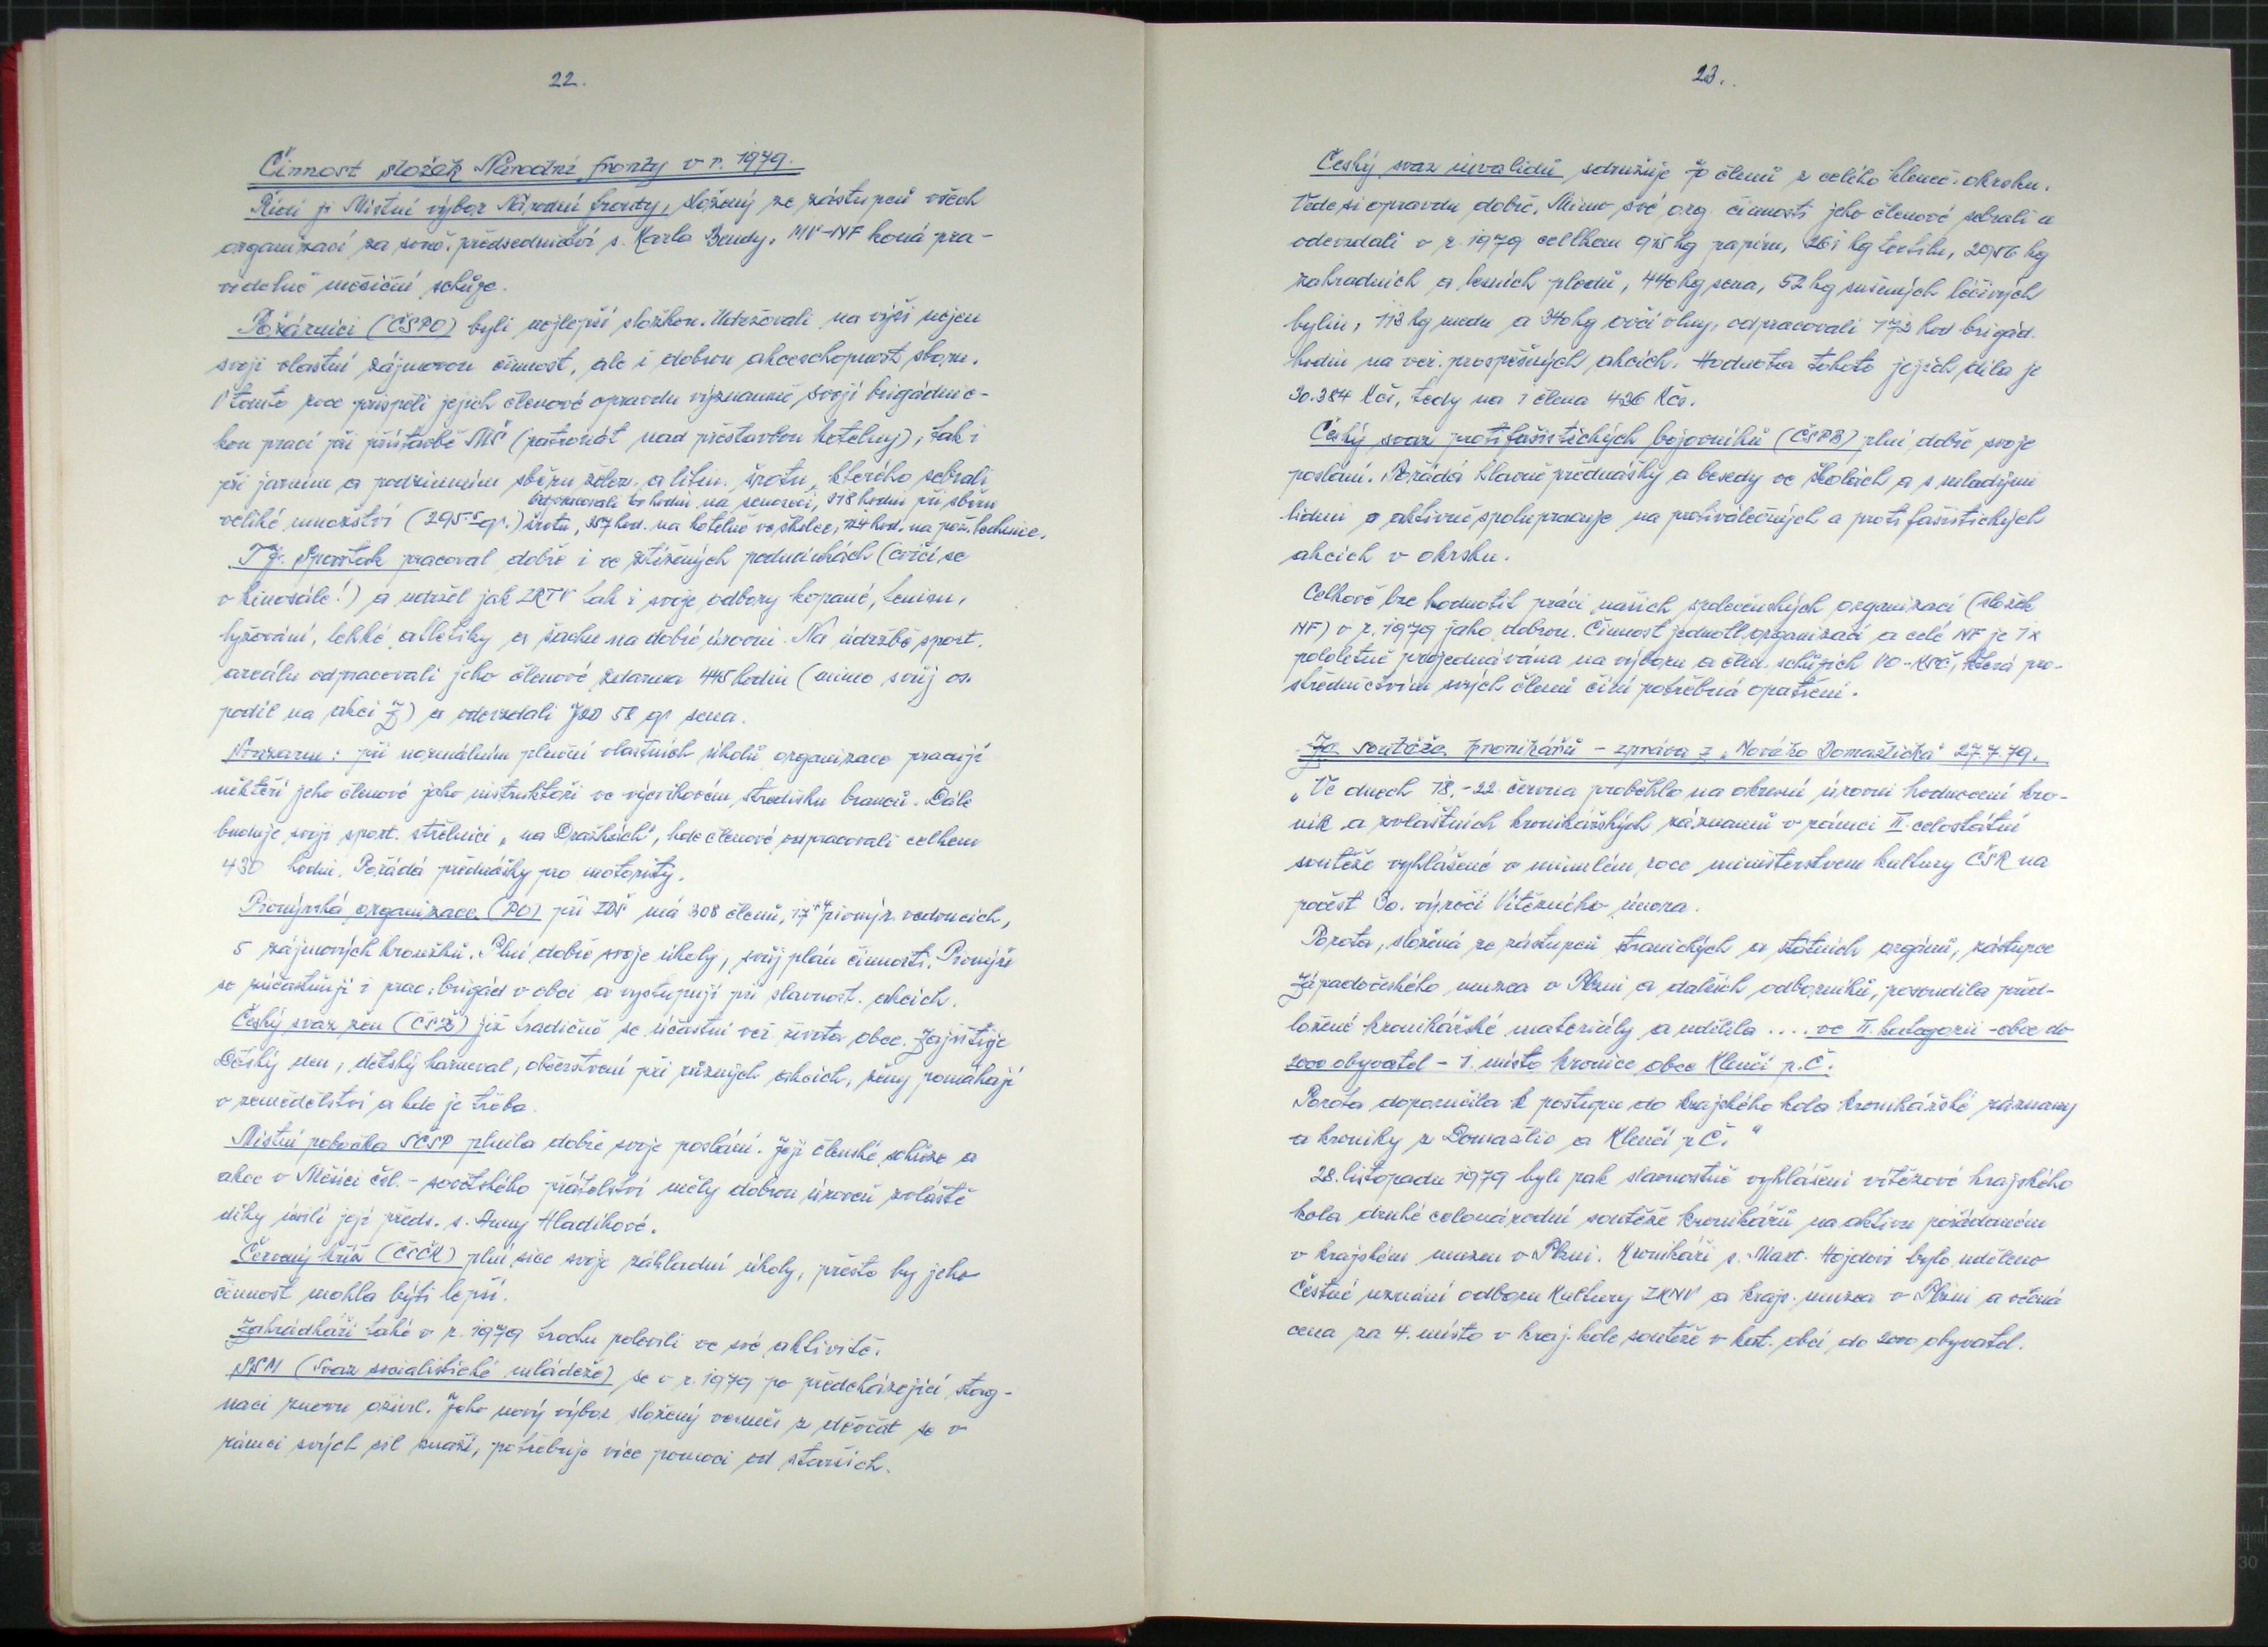 22.
Činnost složek Národní fronty v r. 1979.
Řídí ji Místní výbor Národní fronty, složený ze zástupců všech
organizací za souč. předsednictví s. Karla Bendy. MV-NF koná pra-
videlně měsíční schůze.
Požárníci (ČSPO) byli nejlepší složkou. Udržovali na výši nejen
svoji vlastní zájmovou činnost, ale i dobrou akceschopnost sboru.
V tomto roce přispěli jejich členové opravdu významně svojí brigádnic-
kou prací při přístavbě MŠ (patronát nad přestavbou kotelny), tak i
při jarním a podzimním sběru želez. a litin. šrotu, kterého sebrali
odpracovali hodin na senoseči, 518 hodin při sběru
veliké množství (295 q.) šrotu, 357 hod. na kotelně ve školce, 724 hod. na pož. technice.
T.J. Spartak pracoval dobře i ve ztížených podmínkách (cvičí se
v kinosále!) a udržel jak ZRTV tak i svoje odbory kopané, tenisu,
lyžování, lehké atletiky a šachu na dobré úrovni. Na údržbě sport.
areálu odpracovali jeho členové zdarma 445 hodin (mimo svůj os.
podíl na akci Z) a odevzdali JZD 58 q sena.
Svazarm: při normálním plnění vlastních úkolů organizace pracují
někteří jeho členové jako instruktoři ve výcvikovém středisku branců. Dále
buduje svoji sport. střelnici „na Dražkách", kde členové odpracovali celkem
430 hodin. Pořádá přednášky pro motoristy.
Pionýrská organizace (PO) při ZDŠ má 308 členů, 17+4 pionýr. vedoucích,
5 zájmových kroužků. Plní dobře svoje úkoly, svůj plán činnosti. Pionýři
se zúčastňují i prac. brigád v obci a vystupují při slavnost. akcích.
Český svaz žen (ČSŽ) již tradičně se účastní veř. života obce. Zajišťuje
Dětský den, dětský karneval, občerstvení při různých akcích, ženy pomáhají
v zemědělství a kde je třeba.
Místní pobočka SČSP plnila dobře svoje poslání. Její členské schůze a
akce v Měsíci čsl.-sovětského přátelství měly dobrou úroveň zvláště
díky úsilí její předs. s. Anny Hladíkové.
Červený kříž (ČSČK) plní sice svoje základní úkoly, přesto by jeho
činnost mohla býti lepší.
Zahrádkáři také v r. 1979 trochu polevili ve své aktivitě.
SSM (Svaz socialistické mládeže) se v r. 1979 po předcházející stag-
naci znovu oživil. Jeho nový výbor složený vesměs z děvčat se v
rámci svých sil snaží, potřebuje více pomoci od starších.
23.
Český svaz invalidů sdružuje 70 členů z celého klenč. okrsku.
Vede si opravdu dobře. Mimo své org. činnosti jeho členové sebrali a
odevzdali v r. 1979 cellkem 915 kg papíru, 261 kg textilu, 2956 kg
zahradních a lesních plodů, 440 kg sena, 52 kg sušených léčivých
bylin, 113 kg medu a 340 kg ovčí vlny, odpracovali 172 hod brigád.
hodin na veř. prospěšných akcích. Hodnota tohoto jejich díla je
30.384 Kčs, tedy na 1 člena 436 Kčs.
Český svaz protifašistických bojovníků (ČSPB) plní dobře svoje
poslání. Pořádá hlavně přednášky a besedy ve školách a s mladými
lidmi a aktivně spolupracuje na protiválečných a protifašistických
akcích v okrsku.
Celkově lze hodnotit práci našich společenských organizací (složek
NF) v r. 1979 jako dobrou. Činnost jednotl. organizací a celé NF je 1x
pololetně projednávána na výboru a člen. schůzích VO-KSČ, která pro-
střednictvím svých členů činí potřebná opatření.
Ze soutěže kronikářů - zpráva z „Nového Domažlicka" 27.7.79.
„Ve dnech 18.-22. června proběhlo na okresní úrovni hodnocení kro-
nik a zvláštních kronikářských záznamů v rámci II. celostátní
soutěže vyhlášené v minulém roce ministerstvem kultury ČSR na
počest 30. výročí Vítězného února.
Porota, složená ze zástupců stranických a státních orgánů, zástupce
Západočeského muzea v Plzni a dalších odborníků, posoudila před-
ložené kronikářské materiály a udělila .... ve II. kategorii - obce do
2000 obyvatel - 1. místo kronice obce Klenčí p.Č.
Porota doporučila k postupu do krajského kola kronikářské záznamy
a kroniky z Domažlic a Klenčí p Č."
28. listopadu 1979 byli pak slavnostně vyhlášeni vítězové krajského
kola druhé celonárodní soutěže kronikářů na aktivu pořádaném
v krajském muzeu v Plzni. Kronikáři s. Mart. Hojdovi bylo uděleno
Čestné uznání odboru kultury ZKNV a kraj. muzea v Plzni a věcná
cena za 4. místo v kraj. kole soutěže v kat. obcí do 2000 obyvatel.